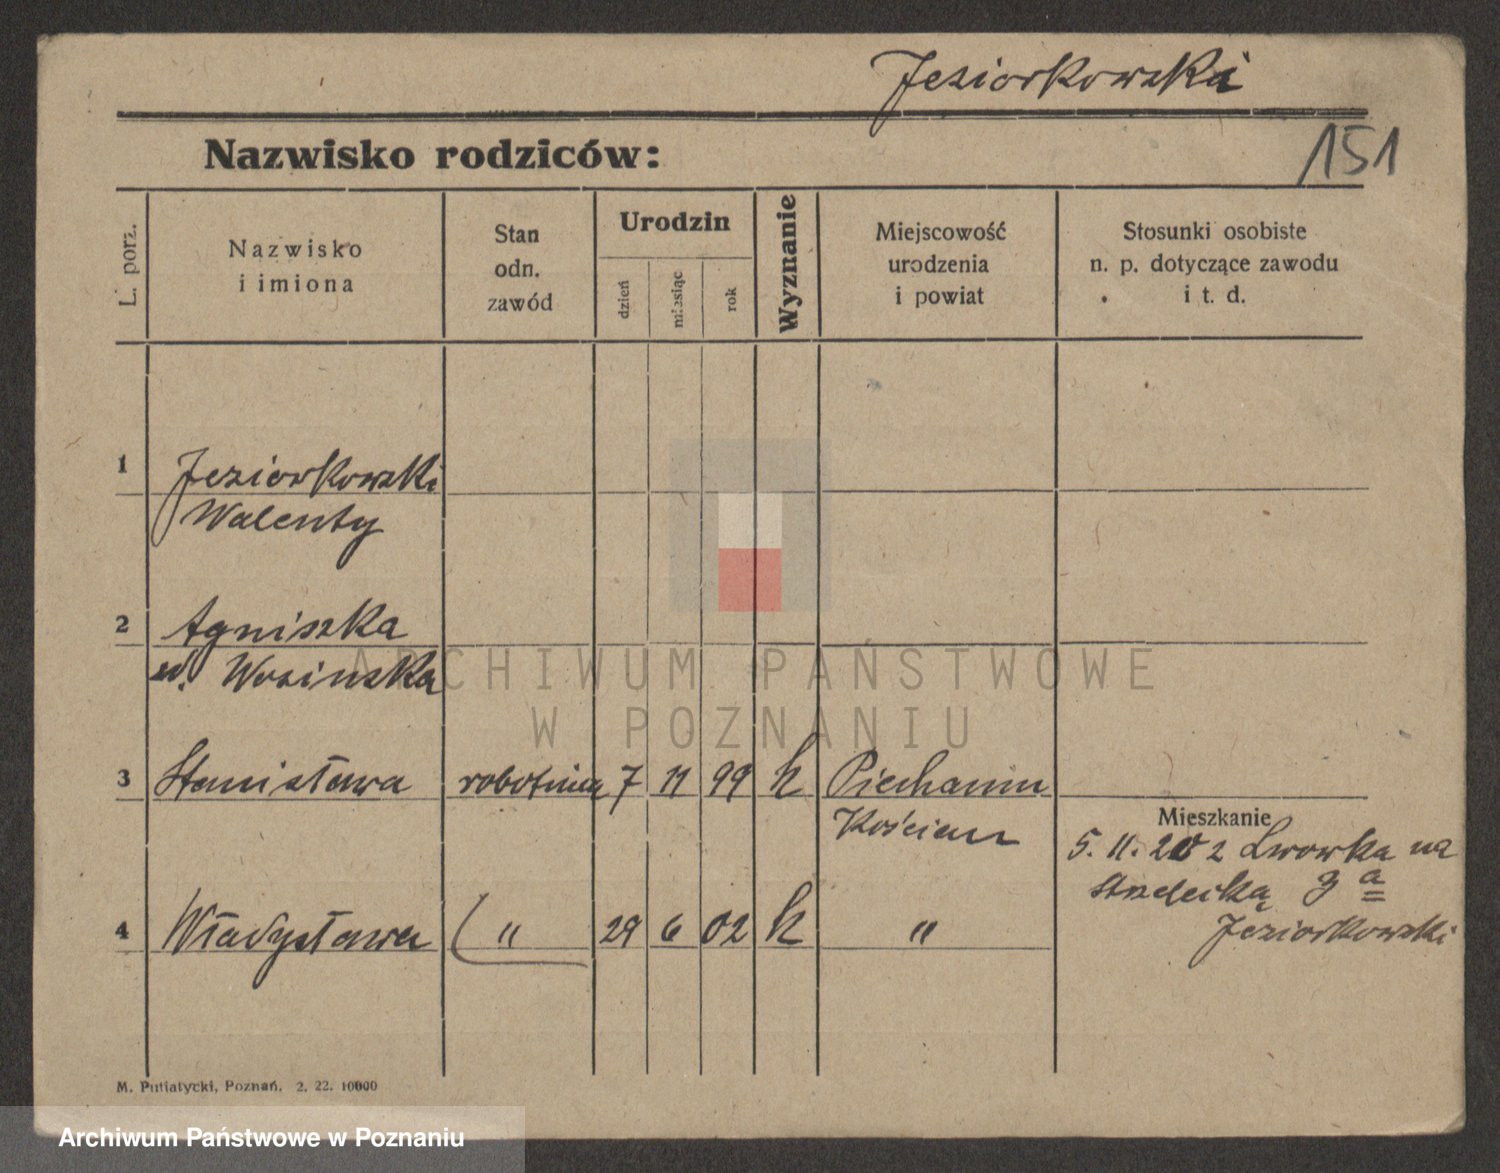 Jeziorkowski
151
Nazwisko rodziców:
L. porz.
Nazwisko
i imiona
Stan
odn.
zawód
Urodzin
dzień
miesiąc
rok
Wyznanie
Miejscowość
urodzenia
i powiat
Stosunki osobiste
n. p. dotyczące zawodu
i t. d.
1 Jeziorkowski
Walenty
2 Agniszka
Wozinska
ARCHIWUM PAŃSTWOWE
W POZNANIU
3 Stanisława robotnica 7 11 99 k Piechanin
Kościan
Mieszkanie
5. 11. 20 z Lwowka na
3 a
Jeziorkowski
4 Władysława " 29 6 02 k "
M. Putiatycki, Poznań. 2. 22. 10000
Archiwum Państwowe w Poznaniu